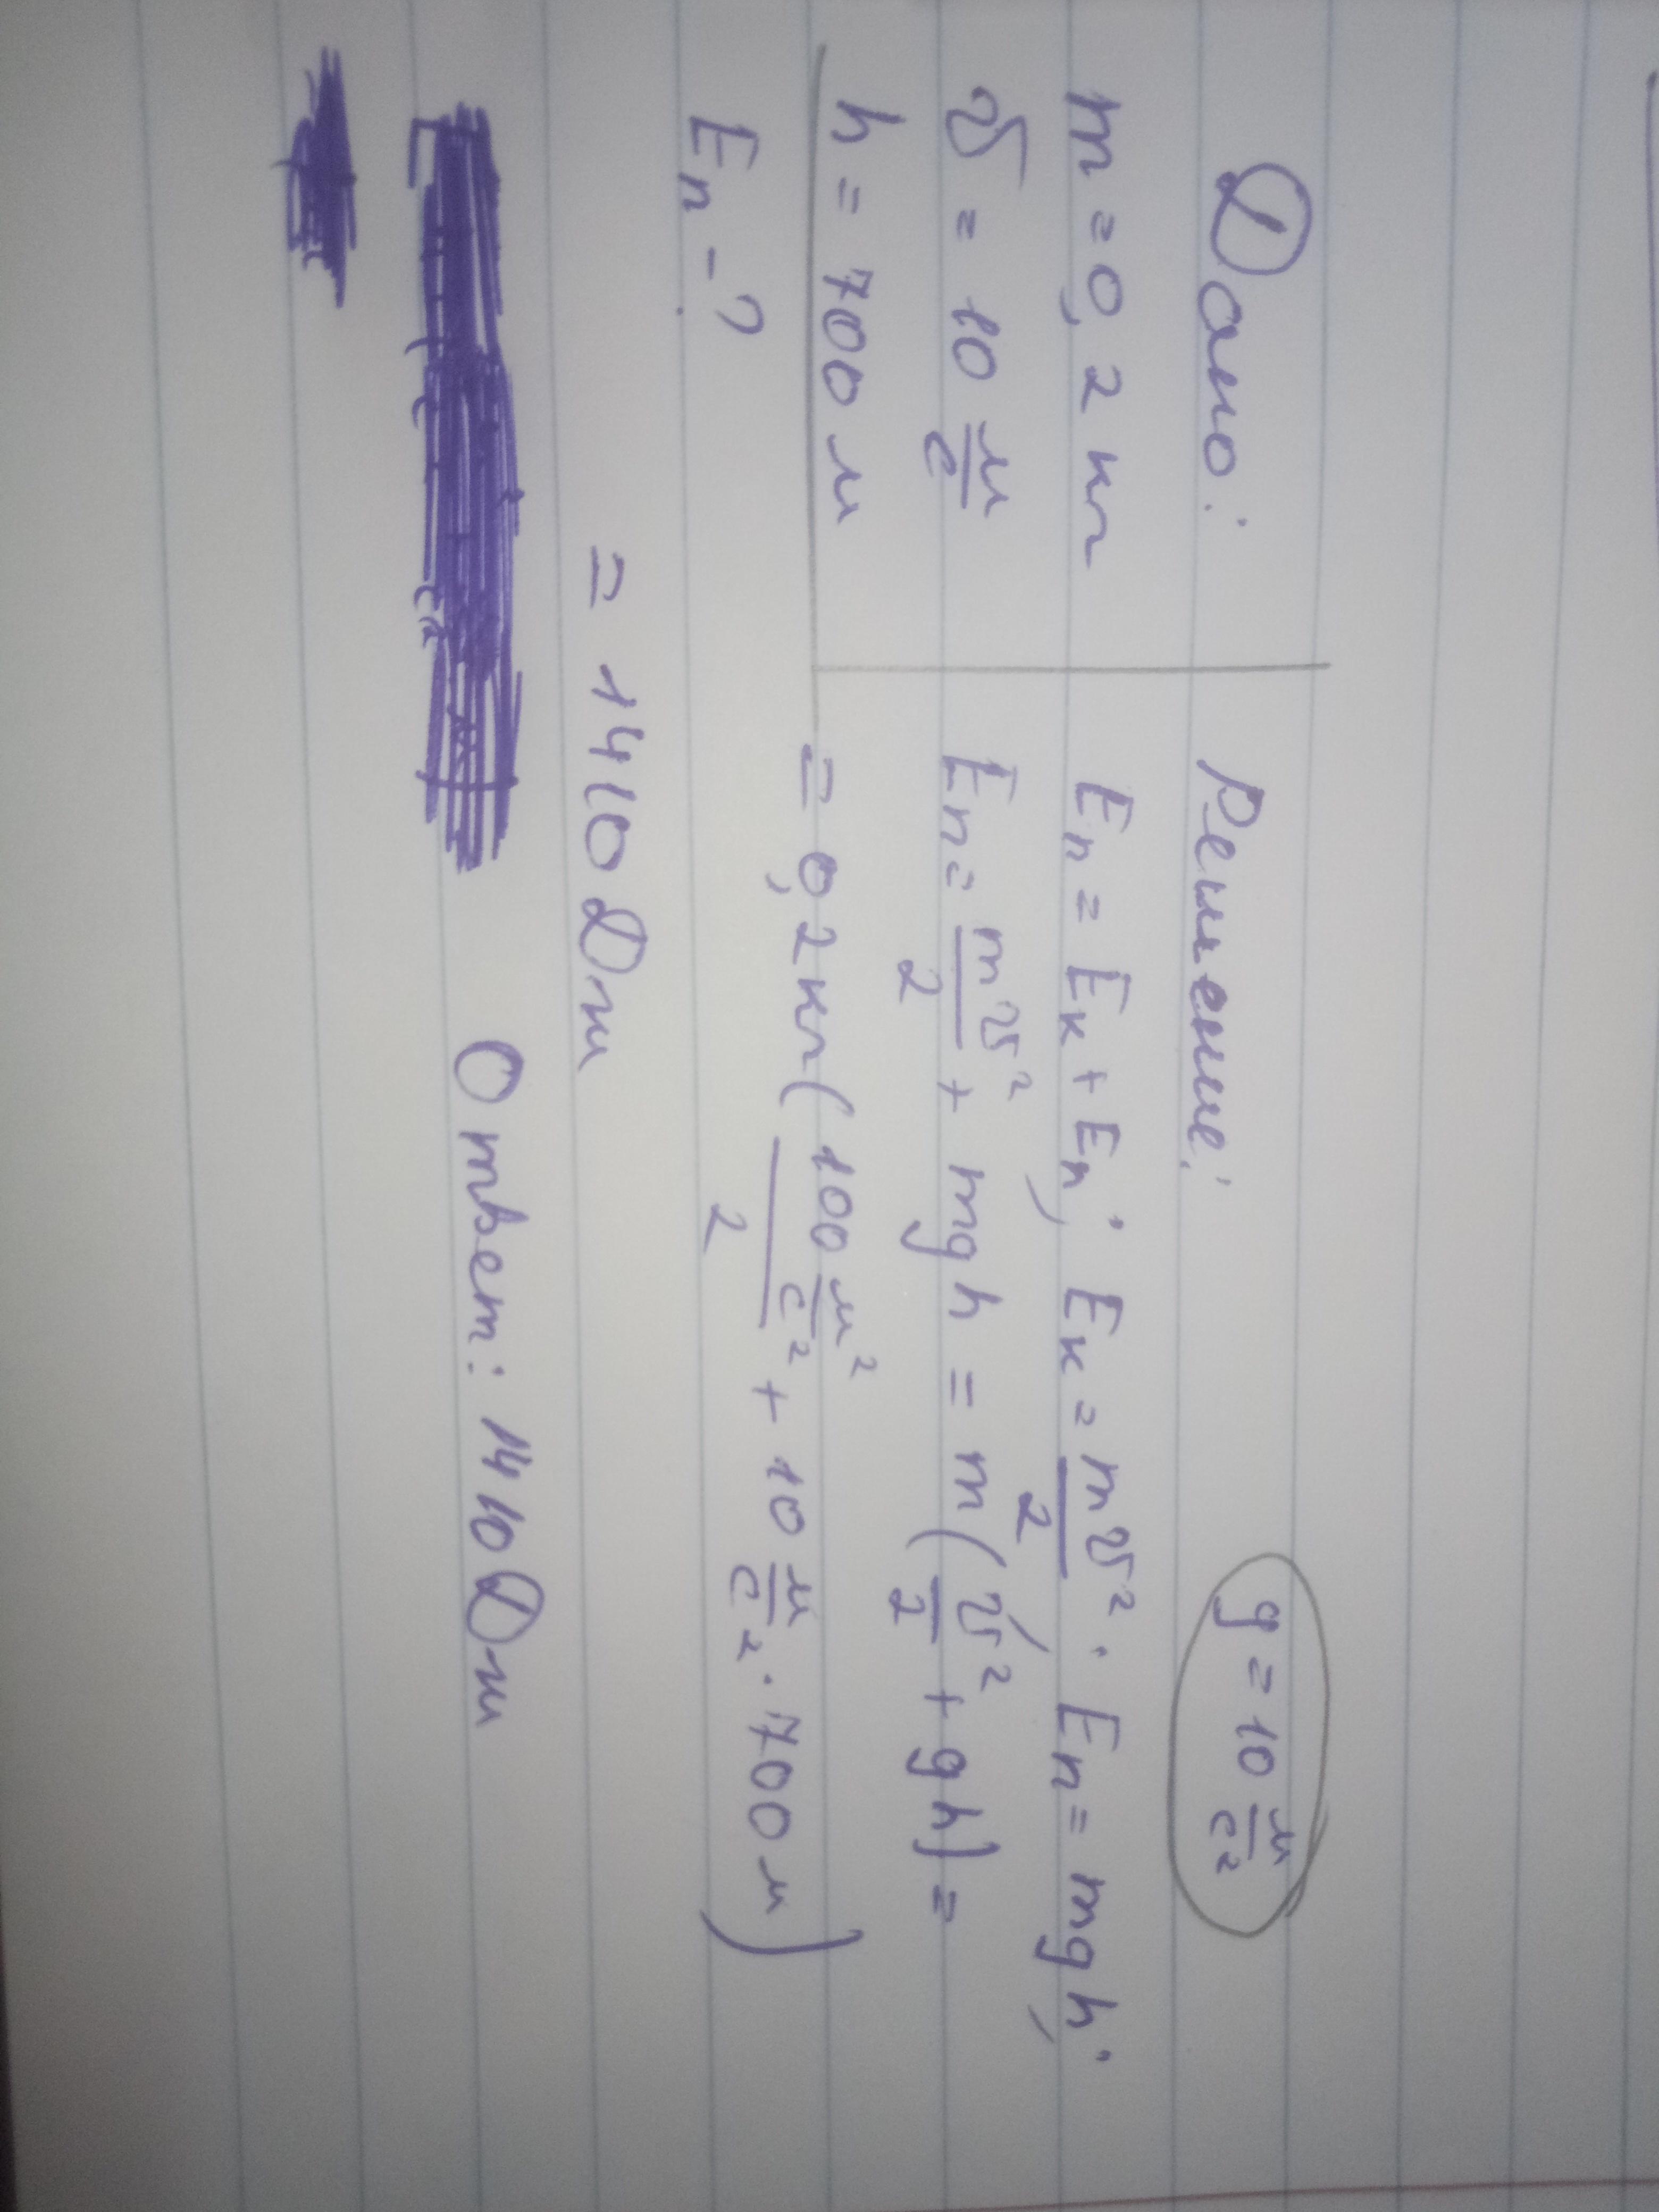 Дано:
m = 0,2 кг
v = 10 м/с
h = 700 м
Eп - ?
Решение: g = 10 м/с²
Eп = Eк + Eп; Eк = mv²/2; Eп = mgh;
Eп = mv²/2 + mgh = m(v²/2 + gh) =
= 0,2кг(100 м²/с² / 2 + 10 м/с² · 700 м)
= 1410 Дж
Ответ: 1410 Дж